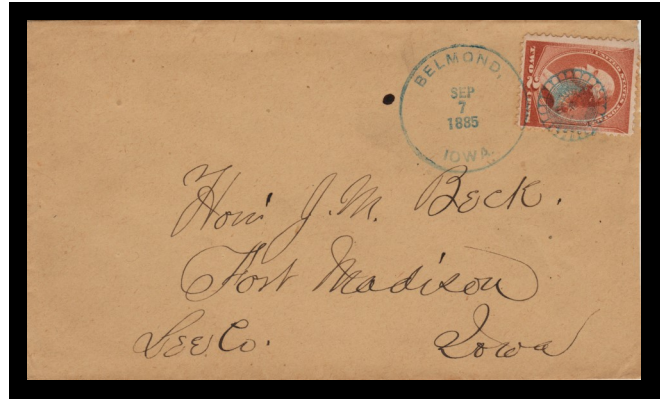 BELMOND,
SEP
7
1885
IOWA.
TWO CENTS
Hon J. M. Beck.
Fort Madison
Lee Co. Iowa